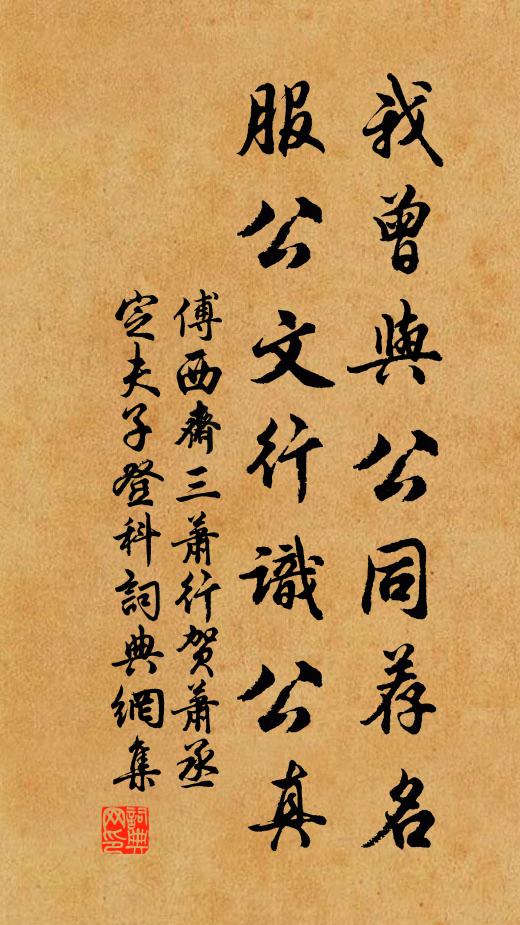 我曾與公同荐名
服公文行識公真
傅西齋三蕭行賀蕭丞
定夫子登科詞典網集
詞典
网印